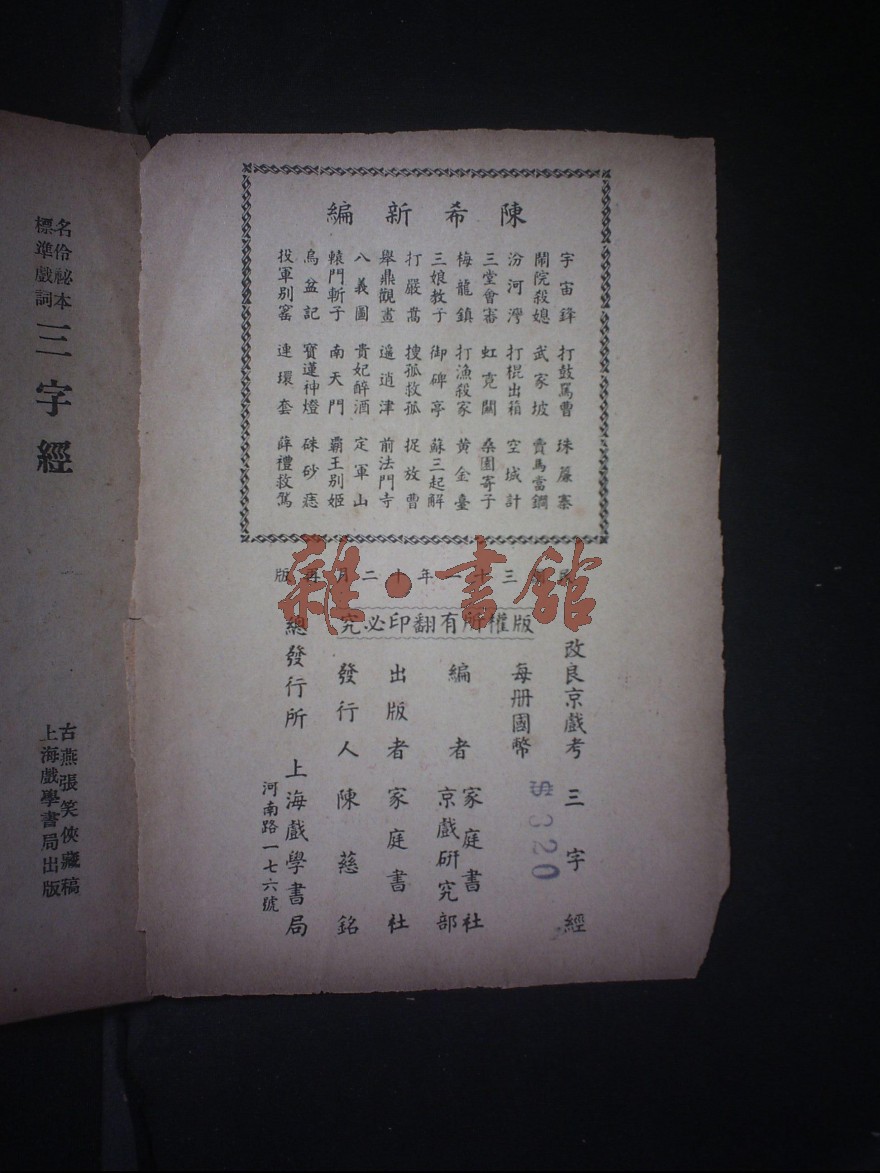 陳希新編
宇宙鋒 打鼓罵曹 珠簾寨
鬧院殺媳 武家坡 賣馬當鐧
汾河灣 打棍出箱 空城計
三堂會審 虹霓關 桑園寄子
梅龍鎮 打漁殺家 黃金臺
三娘教子 御碑亭 蘇三起解
打嚴嵩 搜孤救孤 捉放曹
舉鼎觀畫 遥逍津 前法門寺
八義圖 貴妃醉酒 定軍山
轅門斬子 南天門 霸王別姬
烏盆記 寶蓮神燈 硃砂痣
投軍別窰 連環套 薛禮救駕
民國三十一年十二月再版
雜·書館
版權所有翻印必究
改良京戲考 三字經
每册國幣 $320
編者 家庭書社
京戲研究部
出版者 家庭書社
發行人 陳慈銘
總發行所 上海戲學書局
河南路一七六號
名伶祕本
標準戲詞
三字經
古燕張笑俠藏稿
上海戲學書局出版